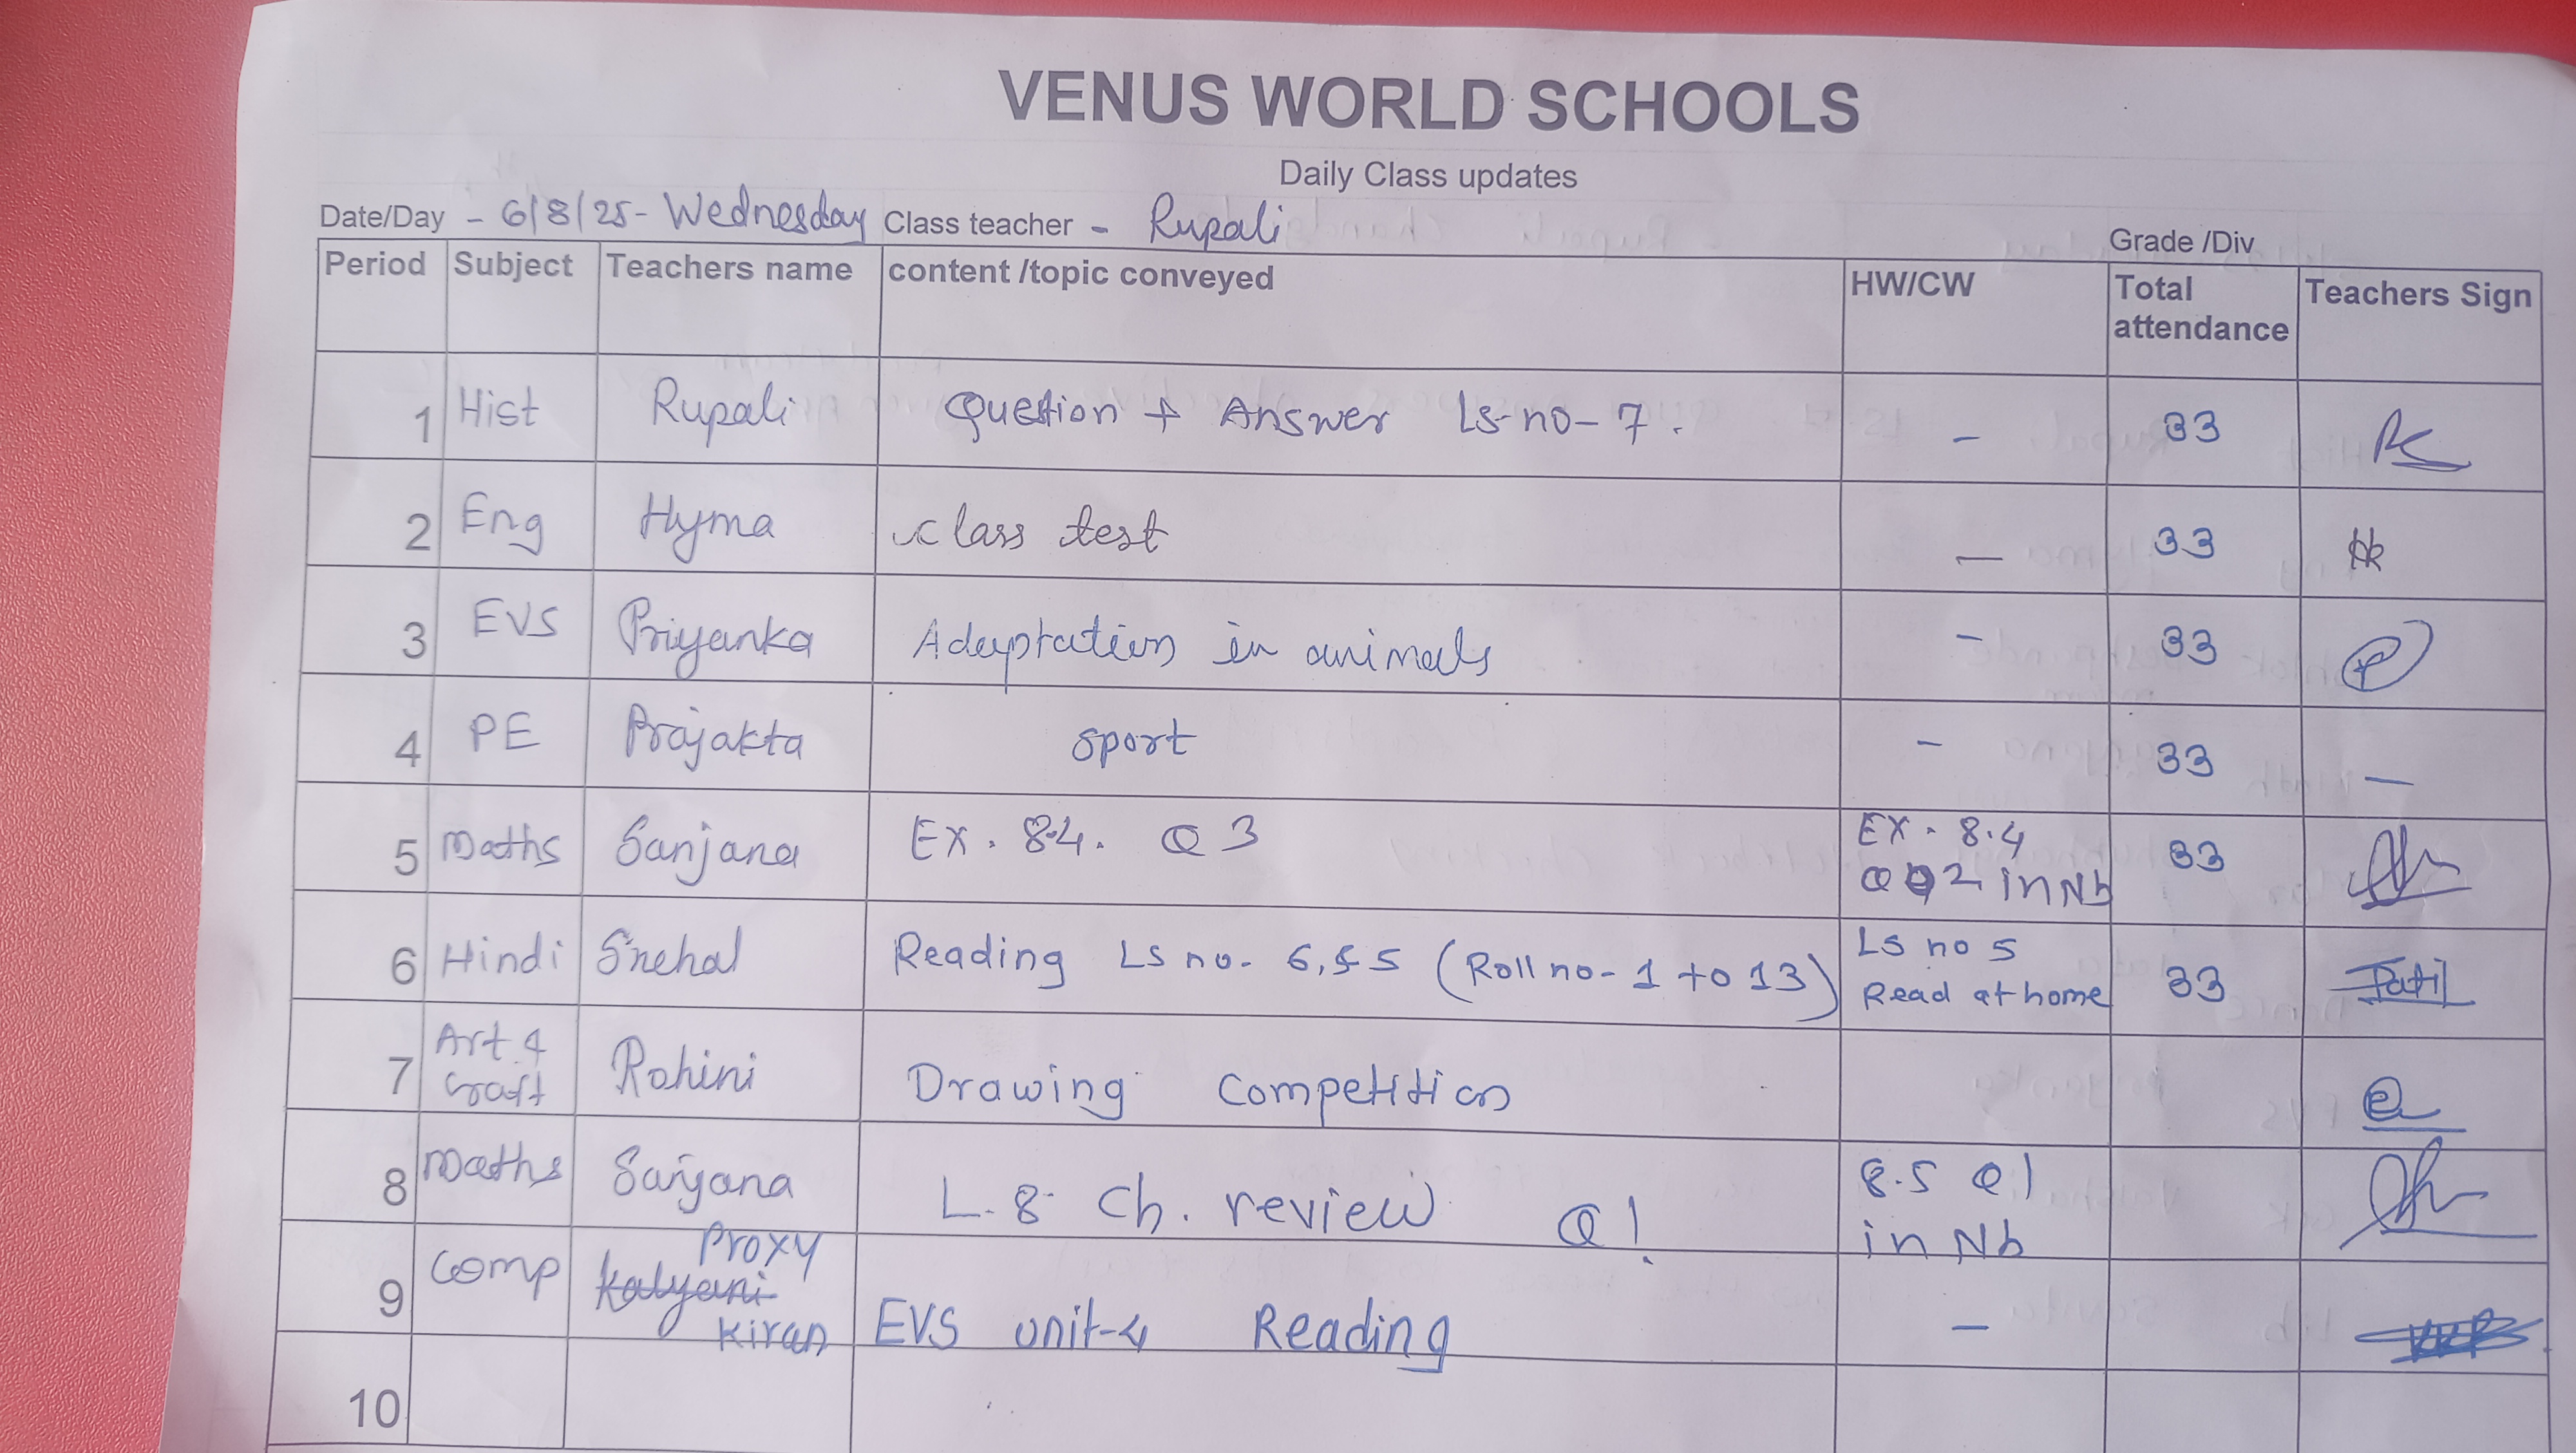 VENUS WORLD SCHOOLS
Daily Class updates
Date/Day - 6/8/25- Wednesday Class teacher - Rupali Grade /Div
Period Subject Teachers name content /topic conveyed HW/CW Total attendance Teachers Sign
1 Hist Rupali Question + Answer Ls-no-7. - 33
2 Eng Hyma class test - 33
3 EVS Priyanka Adaptation in animals - 33
4 PE Prajakta sport - 33 -
5 Maths Sanjana Ex. 8.4. Q 3 EX. 8.4 Q 2 in Nb 33
6 Hindi Snehal Reading Ls no. 6, & 5 (Roll no- 1 to 13) Ls no 5 Read at home 33 Patil
7 Art & Craft Rohini Drawing Competition
8 Maths Sanjana L. 8 Ch. review Q 1 8.5 Q 1 in Nb
9 Comp Proxy Kalyani Kiran EVS unit-4 Reading -
10